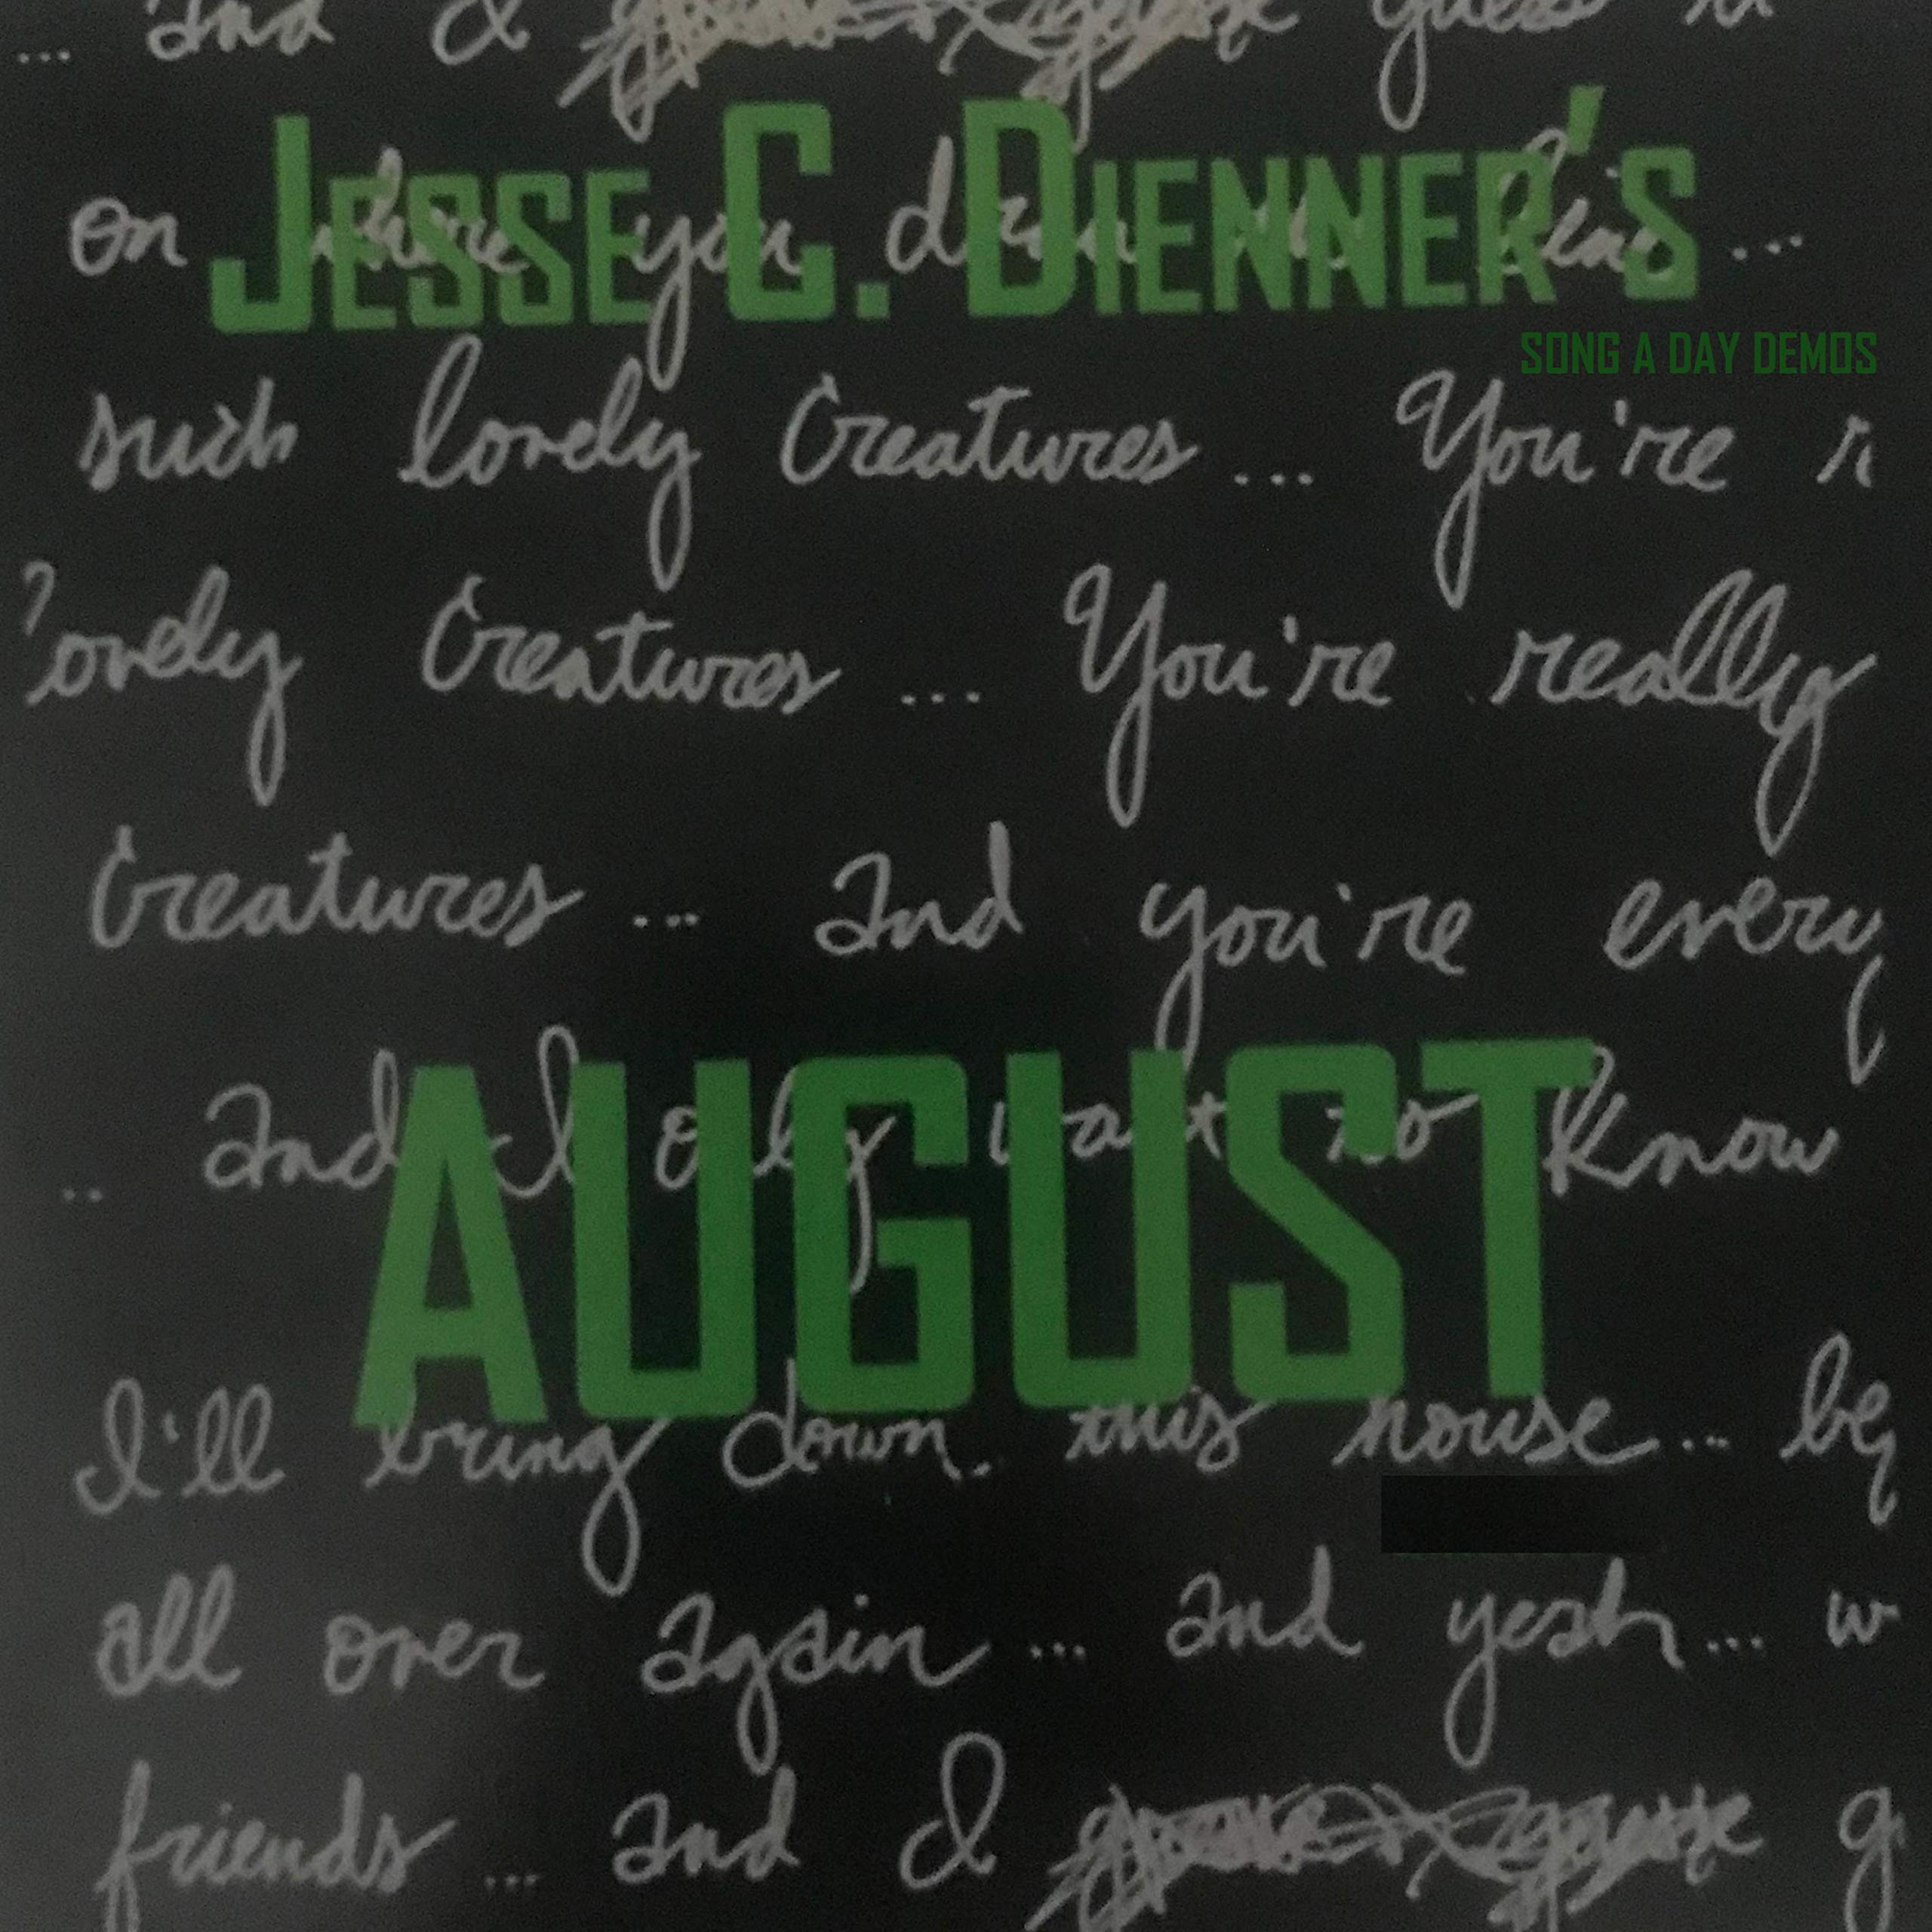 ... and I guess it
JESSE C. DIENNER'S
on where you draw the line ...
SONG A DAY DEMOS
such lovely Creatures ... You're r
lovely Creatures ... You're really
Creatures ... and you're every
AUGUST
.. and I only want to know
I'll bring down this house ... be
all over again ... and yeah ... w
friends ... and I g